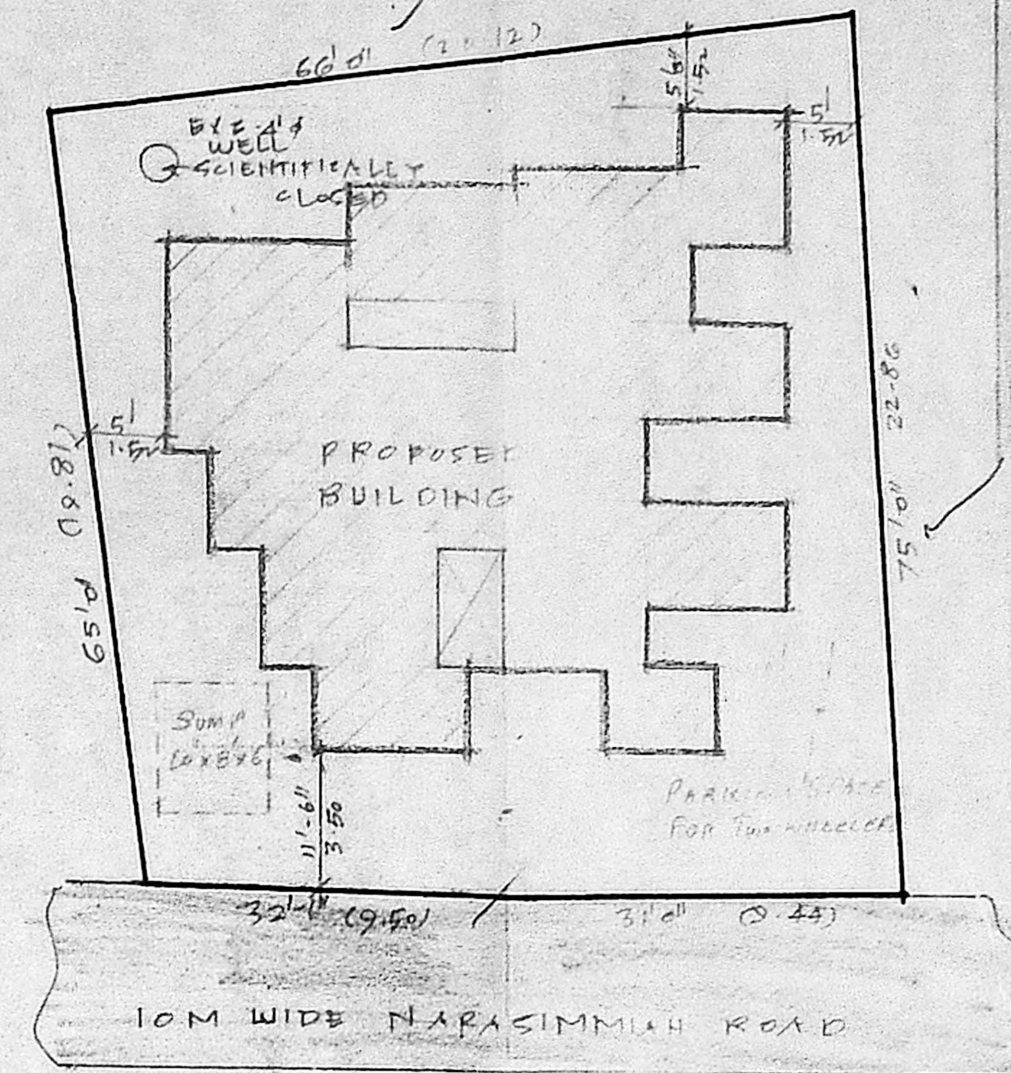 66'0"
5'0"
1.52
5'
1.52
EXE 4'φ
WELL
SCIENTIFICALLY
CLOSED
22-86
75'0"
5'
1.52
PROPOSED
BUILDING
65'0" (19.81)
SUMP
10x8x6
11'-6"
3.50
PARKING SPACE
FOR TWO WHEELERS
32'-1" (9.50)
31'0" (9.44)
10M WIDE NARASIMMIAH ROAD